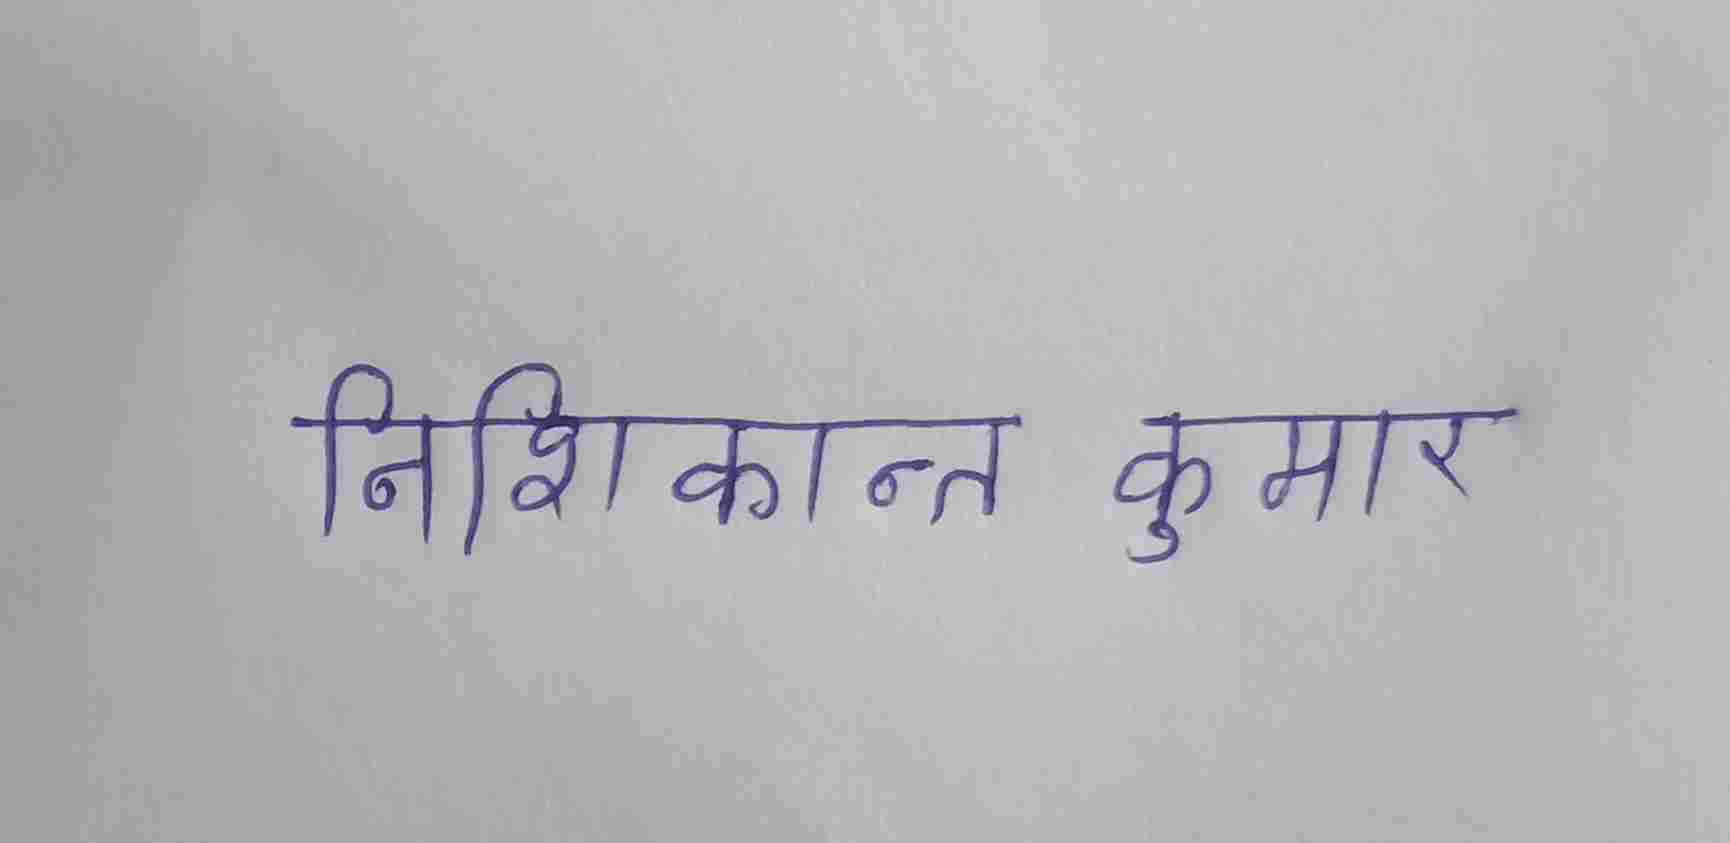 निशिकान्त कुमार